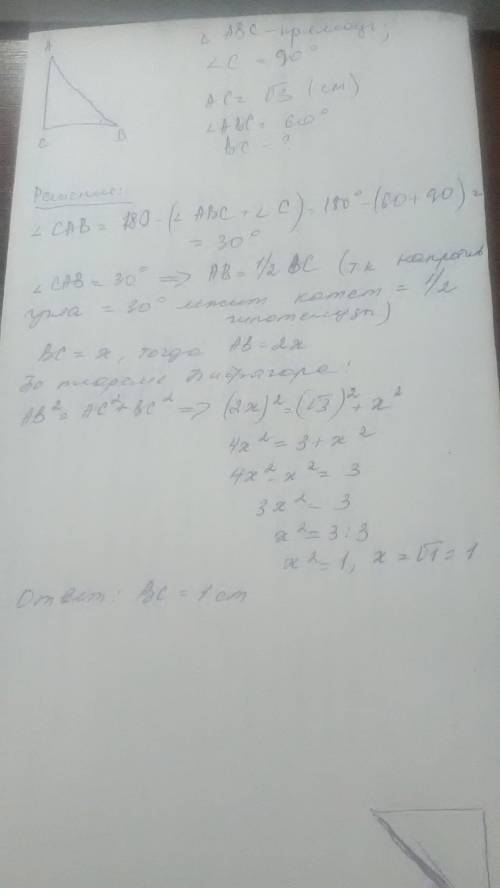 A
C
B
Δ ABC - прямоуг;
∠C = 90°
AC = √3 (см)
∠ABC = 60°
BC - ?
Решение:
∠CAB = 180 - (∠ABC + ∠C) = 180° - (60 + 90) =
= 30°
∠CAB = 30° => AB = 1/2 BC (т.к напротив
угла = 30° лежит катет = 1/2
гипотенузы)
BC = x, тогда AB = 2x
По теореме Пифагора:
AB² = AC² + BC² => (2x)² = (√3)² + x²
4x² = 3 + x²
4x² - x² = 3
3x² = 3
x² = 3 : 3
x² = 1, x = √1 = 1
Ответ: BC = 1 cm